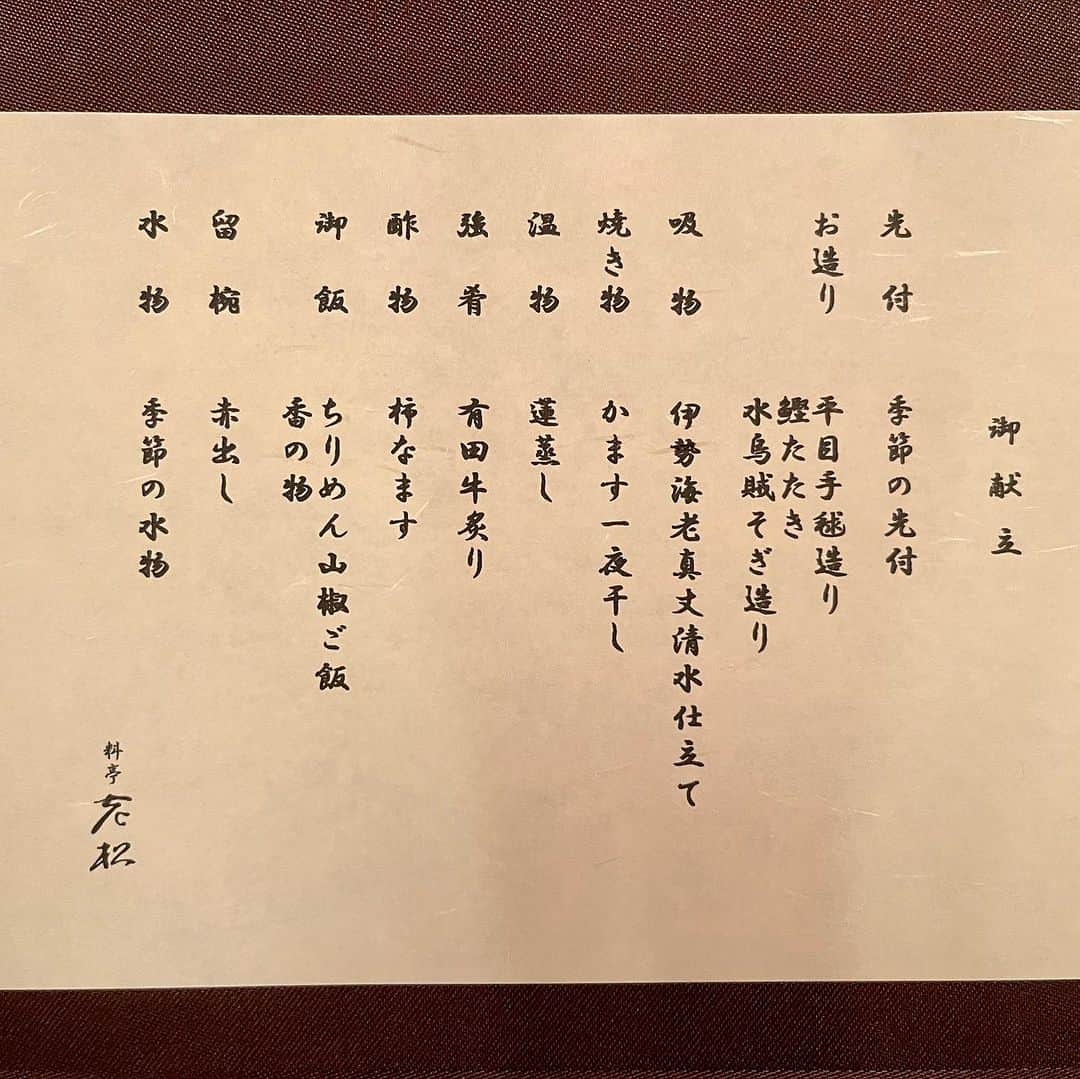 御献立
先付 季節の先付
お造り 平目手毬造り
鰹たたき
水烏賊そぎ造り
吸物 伊勢海老真丈清水仕立て
焼き物 かます一夜干し
温物 蓮蒸し
強肴 有田牛炙り
酢物 柿なます
御飯 ちりめん山椒ご飯
香の物
留椀 赤出し
水物 季節の水物
料亭 老松